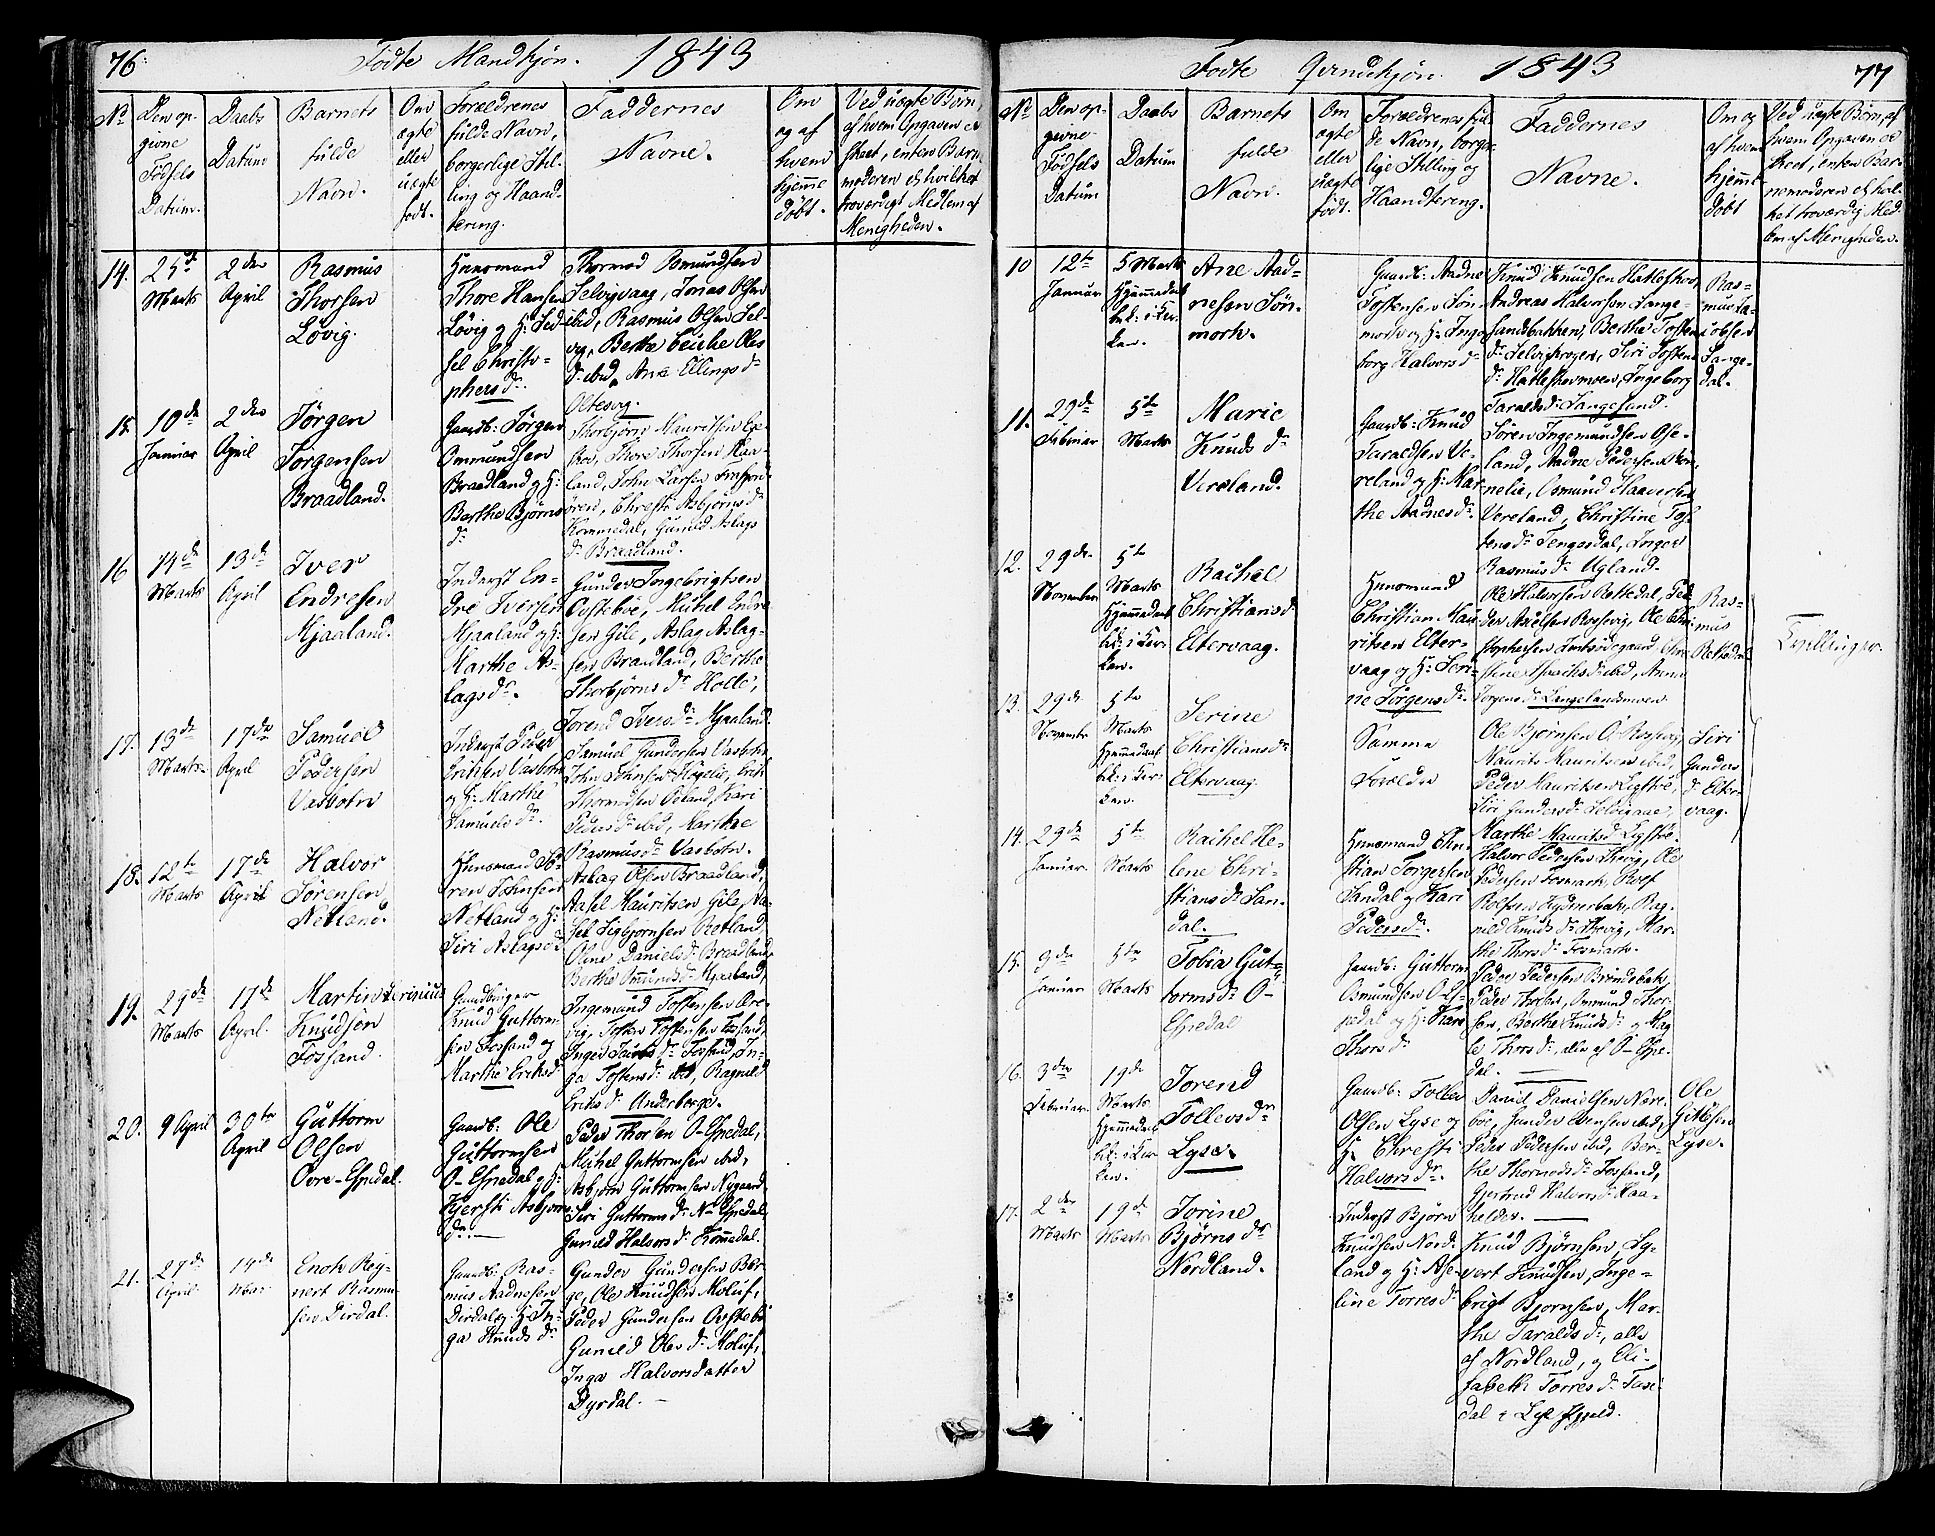 76.
Fødte Mandkjøn. 1843
No
Den op-
givne
Fødsels
Datum.
Daabs
Datum
Barnets
fulde
Navn.
Om
ægte
eller
uægte
født.
Forældrenes
fulde Navn,
borgerlige Stil-
ling og Haand-
tering.
Faddernes
Navne.
Om
og af
hvem
hjemme
døbt.
Ved uægte Børn,
af hvem Opgaven er
skeet, enten Barne
moderen el. hvilket
troværdigt Medlem af
Menigheden.
14.
25de
Marts
2den
April
Rasmus
Thorsen
Løvig.
Huusmand
Thore Hansen
Løvig og H: Sed-
sel Christo-
phersdr.
Thormod Osmundsen
Selvigvaag, Jonas Olsen
ibid, Rasmus Olsen Sel-
vig, Berthe Ceiche Ols
dr ibid, Ane Ellingsdr
Oltesvig.
15.
10de
Januar
2den
April
Jørgen
Jørgensen
Braadland.
Gaardb: Jørgen
Ommundsen
Braadland og H:
Berthe Bjørns
dr
Thorbjørn Mauritsen Ege-
skov, Thore Thorsen Haa-
land, John Larsen Imsjord-
ören, Christi Asbjørnsdr
Kommedal, Gunild Aslags
dr Braadland.
16
14de
Marts
13de
April
Iver
Endresen
Mjaaland.
Inderst En-
dre Iversen
Mjaaland og H:
Marthe As-
lagsdr.
Gunder Ingebrigtsen
Oysteböe, Mickel Endre
sen Gile, Aslag Aslag-
sen Braadland, Berthe
Thorbjørnsdr Holle,
Jorend Iversdr Mjaaland.
17.
13de
Marts.
17de
April
Samuel
Pedersen
Vasbotn
Inderst Peder
Eriksen Vasbotn
og H: Marthe
Samuelsdr.
Samuel Gundersen Vasbotn
John Johnsen Högelie, Erik
Thormodsen Oeland, Kari
Pedersdr ibid, Marthe
Rasmusdr Vasbotn.
18.
12te
Marts
17de
April
Halvor
Sørensen
Netland.
Huusmand Sö-
ren Johnsen
Netland og H:
Siri Aslagsdr
Aslag Olsen Braadland,
Axsel Mauritsen Gile, Ax-
sel Sigbjørnsen Retland,
Oline Danielsdr Braadland,
Berthe Ommundsdr Mjaaland,
19.
29de
Marts
17de
April.
Martin
Knudsen
Fossand.
Gaardbruger
Knud Guttorm-
sen Fossand og
Marthe Eriksdr
Ingemund Tostensen Øre-
vig, Tosten Tostensen Fossand,
Inger Jacobsdr Fossand, In-
ga Tostensdr ibid, Ragnild
Eriksdr Underberge.
20.
9 April
30te
April
Guttorm
Olsen
Övre-Espedal.
Gaardb: Ole
Guttormsen
O-Espedal og H:
Kjersti Asbjørns
dr.
Peder Thorsen O-Espedal,
Mickel Guttormsen ibid,
Asbjørn Guttormsen Nygaard,
Siri Guttormsdr N. Espedal,
Gunild Halvorsdr Kommedal.
21.
27de
April
14de
Mai
Enok Reg-
nert Rasmu
sen Dirdal.
Gaardb: Ras-
mus Aadnesen
Dirdal og H: In-
ga Knudsdr
Gunder Gundersen Ber-
ge, Ole Knudsen Moluf,
Peder Gundersen Oystebö
Gunild Olsdr Moluf,
Inga Halvorsdatter
Dyrdal.
Fødte Qvindekjøn. 1843
77
No
Den op-
givne
Fødsels
Datum
Daabs
Datum
Barnets
fulde
Navn.
Om
ægte
eller
uægte
født.
Forældrenes ful-
de Navn, borger-
lige Stilling og
Haandtering.
Faddernes
Navne.
Om og
af hvem
hjemme
døbt
Ved uægte Børn, af
hvem Opgaven er
skeet, enten Bar-
nemoderen el. hvil-
ket troværdig Med-
lem af Menigheden.
10
12te
Januar
5 Marts
Hjemmedaab
bek: i Kir-
ken.
Ane Aad-
nesen Søn-
mork.
Gaardb: Aadne
Tostensen Søn-
mork og H: Inge-
borg Halvorsdr
Knud Knudsen Hatleskov,
Andreas Halvorsen Lange-
sandsbakken, Berthe Tosten
dr Selvigkrogen, Siri Tostens
dr Hatleskovmoen, Ingeborg
Taraldsdr Langesand.
Ras-
mus Ja-
cobsen
Lange-
dal.
11.
29de
Februar
5te
Marts
Marie
Knudsdr
Vereland.
Gaardb: Knud
Taraldsen Ve-
reland og H: Mar-
the Aadnesdr.
Sören Ingemundsen Ose-
land, Aadne Pedersen
nelie, Osmund Haaversen
Vereland, Christine Tos-
tensdr Tengesdal, Inger
Rasmusdr Ugland.
12.
29de
November
5te
Marts
Hjemmedaab
bek: i Kir-
ken.
Rachel
Christiansdr
Eltervaag.
Huusmand
Christian Mau-
ritsen Elter-
vaag og H: Seri-
ne Jørgensdr.
Ole Halvorsen Rettedal, Pe-
der Axelsen Rossevig, Ole Chri-
stophersen ibid, Anna
Jørgensdr Langelandsmoen
Ras-
mus
Rettedal
Tvillinger.
13.
29de
November
5te
Marts
Hjemmedaab
bek: i Kir-
ken.
Serine
Christiansdr
Eltervaag.
Samme
Forældre
Ole Bjørnsen O-Rossevig,
Maurits Mauritsen ibid,
Peder Mauritsen Ligthe,
Siri Gundersdr Selvigaae,
Marthe Mauritsdr Ligthe.
Siri
Gunders
dr Elter-
vaag.
14.
29de
Januar
5te
Marts
Rachel He-
lene Chri-
stiansdr San-
dal.
Huusmand Chri-
stian Torgersen
Sandal og Kari
Pedersdr.
Halvor Pedersen Thevig, Ole
Pedersen Fosmark, Roef
Roefsen Rydnerbak, Rag-
nild Knudsdr Thevig, Mar-
the Thorsdr Fosmark.
15.
9de
Januar
5te
Marts
Tobia Gut-
tormsdr O-
Espedal
Gaardb: Guttorm
Osmundsen O-Es-
pedal og H: Kari
Thorsdr
Peder Pedersen Brundebak,
Peder Thorsen, Ommund Thor-
sen, Berthe Knudsdr og Mag-
le Thorsdr, alle af O-Espe-
dal.
16.
3den
Februar.
19de
Marts
Hjemmedaab
bek: i Kir-
ken.
Jorend
Tollevsdr
Lyse.
Gaardb: Tollev
Olsen Lyse og
H: Christi
Halvorsdr.
Daniel Danielsen Nere-
böe, Gunder Evensen ibid,
Peder Pedersen ibid, Ber-
the Thormodsdr Fossand,
Gjertrud Halvorsdr Haa-
helder.
Ole
Gitlesen
Lyse.
17.
2den
Marts
19de
Marts
Jorine
Bjørnsdr
Nordland.
Inderst Bjørn
Knudsen Nord-
land og H: Ase-
line Torresdr
Knud Bjørnsen, Sy-
vert Knudsen, Inge-
brigt Bjørnsen, Mar-
the Taraldsdr, alle
af Nordland, og Eli-
sabeth Torresdr Tase-
dal i Lyse Sogn.